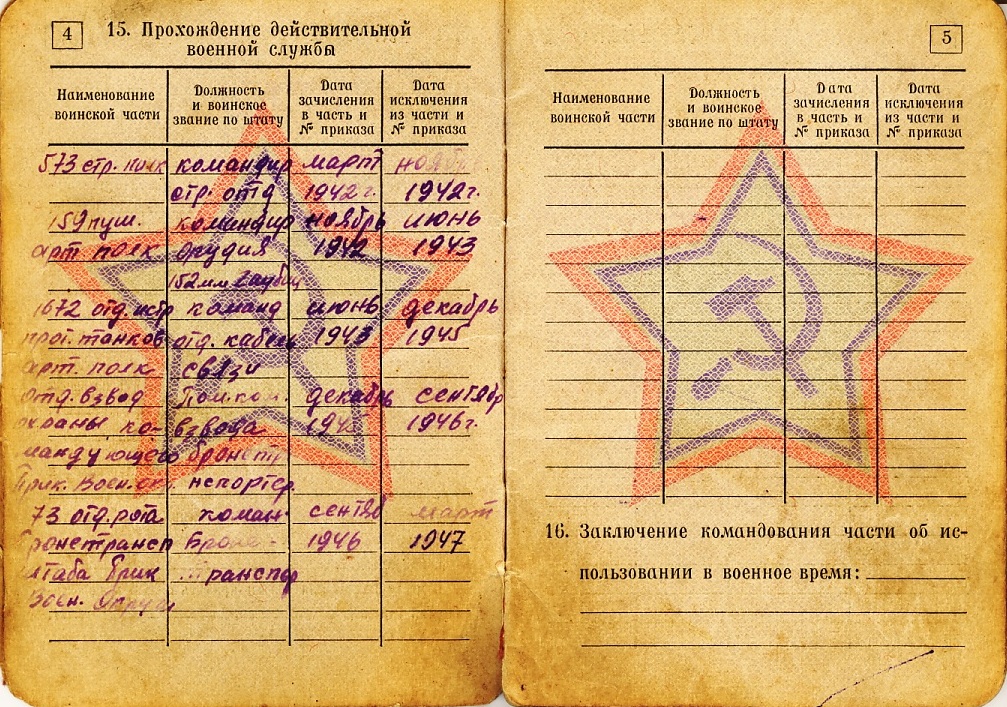 4
15. Прохождение действительной
военной службы
Наименование воинской части
Должность и воинское звание по штату
Дата зачисления в часть и № приказа
Дата исключения из части и № приказа
573 стр. полк командир март
стр. отд 1942 г. 1942 г.
159 пуш. командир ноябрь июнь
арт полк орудия 1942 1943
152 мм гаубиц
1672 отд. истр команд июнь декабрь
прот. танков отд. кабель 1943 1945
арт. полк связи
отд. взвод Помком. декабрь сентябр
охраны ко- взвода 1946 г.
мандующего бронетр
Прик. Воен. нспортер.
73 отд. рота коман- сентяб март
Бронетрансп Броне- 1946 1947
штаба Прик транспор
Воен.
5
Наименование воинской части
Должность и воинское звание по штату
Дата зачисления в часть и № приказа
Дата исключения из части и № приказа
16. Заключение командования части об ис-
пользовании в военное время: